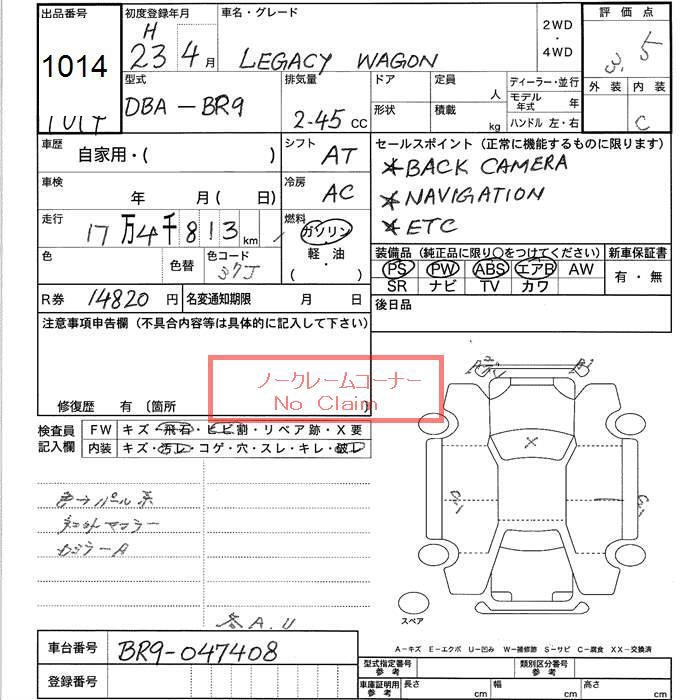 出品番号 初度登録年月 車名・グレード 2WD・4WD 評価点
1014 H 23 4月 LEGACY WAGON 3.5
型式 排気量 ドア 定員 人 ディーラー・並行 外装 内装
DBA-BR9 2-45 cc 形状 積載 kg モデル年式 年 C
ハンドル 左・右
車歴 自家用・( ) シフト AT セールスポイント(正常に機能するものに限ります)
*BACK CAMERA
車検 年 月( 日) 冷房 AC *NAVIGATION
*ETC
走行 17万4千813km 燃料 ガソリン・軽油・( )
色 色替 色コード 37J 装備品(純正品に限り○をつけてください) 新車保証書
PS PW ABS エアB AW 有・無
SR ナビ TV カワ
R券 14820円 名変通知期限 月 日 後日品
注意事項申告欄(不具合内容等は具体的に記入して下さい)
ノークレームコーナー
No Claim
修復歴 有〔箇所
検査員記入欄 FW キズ・飛石・ヒビ割・リペア跡・X要
内装 キズ・汚レ・コゲ・穴・スレ・キレ・破レ
X
スペア
各A.U
A-キズ E-エクボ U-凹み W-補修跡 S-サビ C-腐食 XX-交換済
車台番号 BR9-047408
型式指定番号 参考 類別区分番号 参考
登録番号 車庫証明用 参考 長さ cm 幅 cm 高さ cm